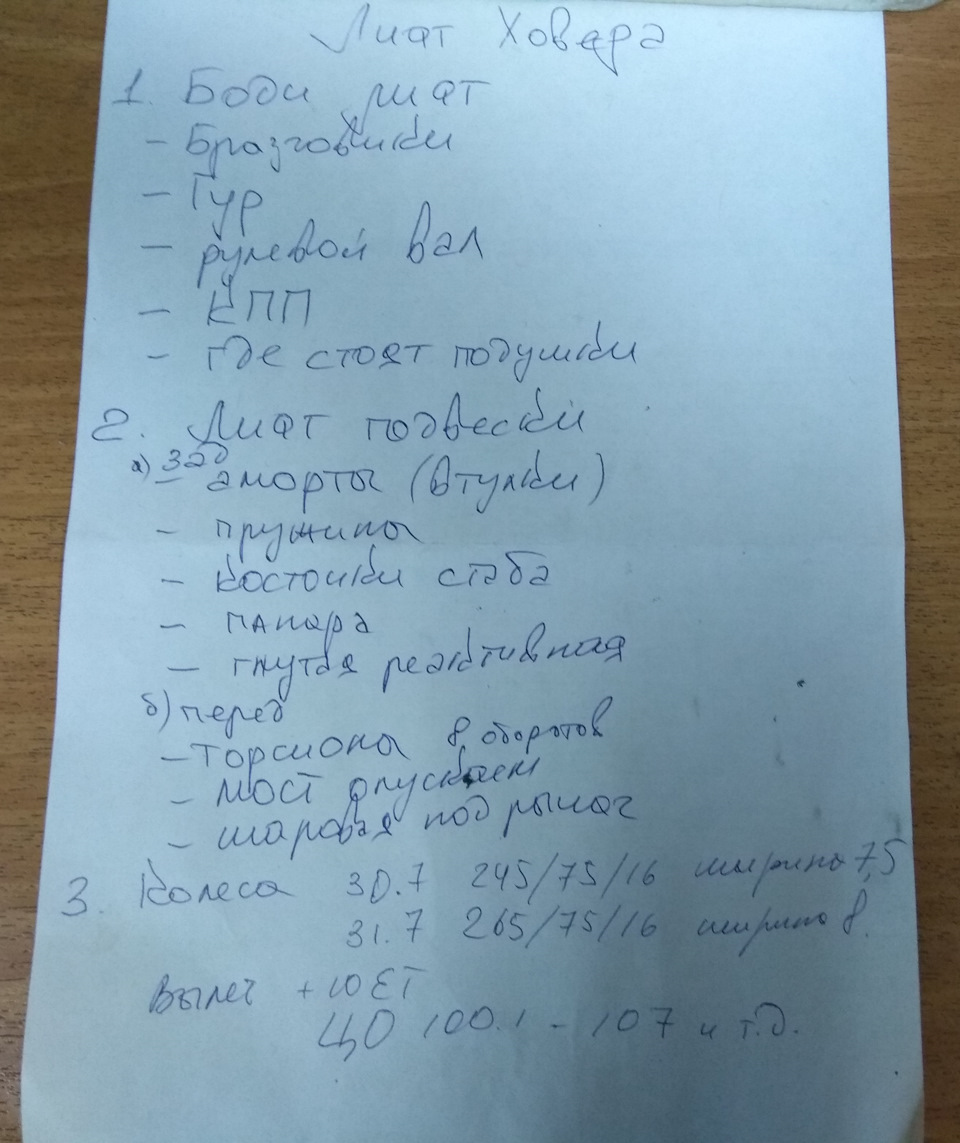 Лифт Ховера
1. Боди лифт
- Бразговики
- Гур
- рулевой вал
- КПП
- где стоят подушки
2. Лифт подвески
а) зад
- аморты (втулки)
- пружины
- косточки стаба
- панара
- гнутая реактивная
б) перед
- торсионы 8 оборотов
- мост опускаем
- шаровая под рычаг
3. Колеса 30.7 245/75/16 ширина 7,5
31.7 265/75/16 ширина 8.
Вылет +10 ET
ЦО 100.1 - 107 и т.д.